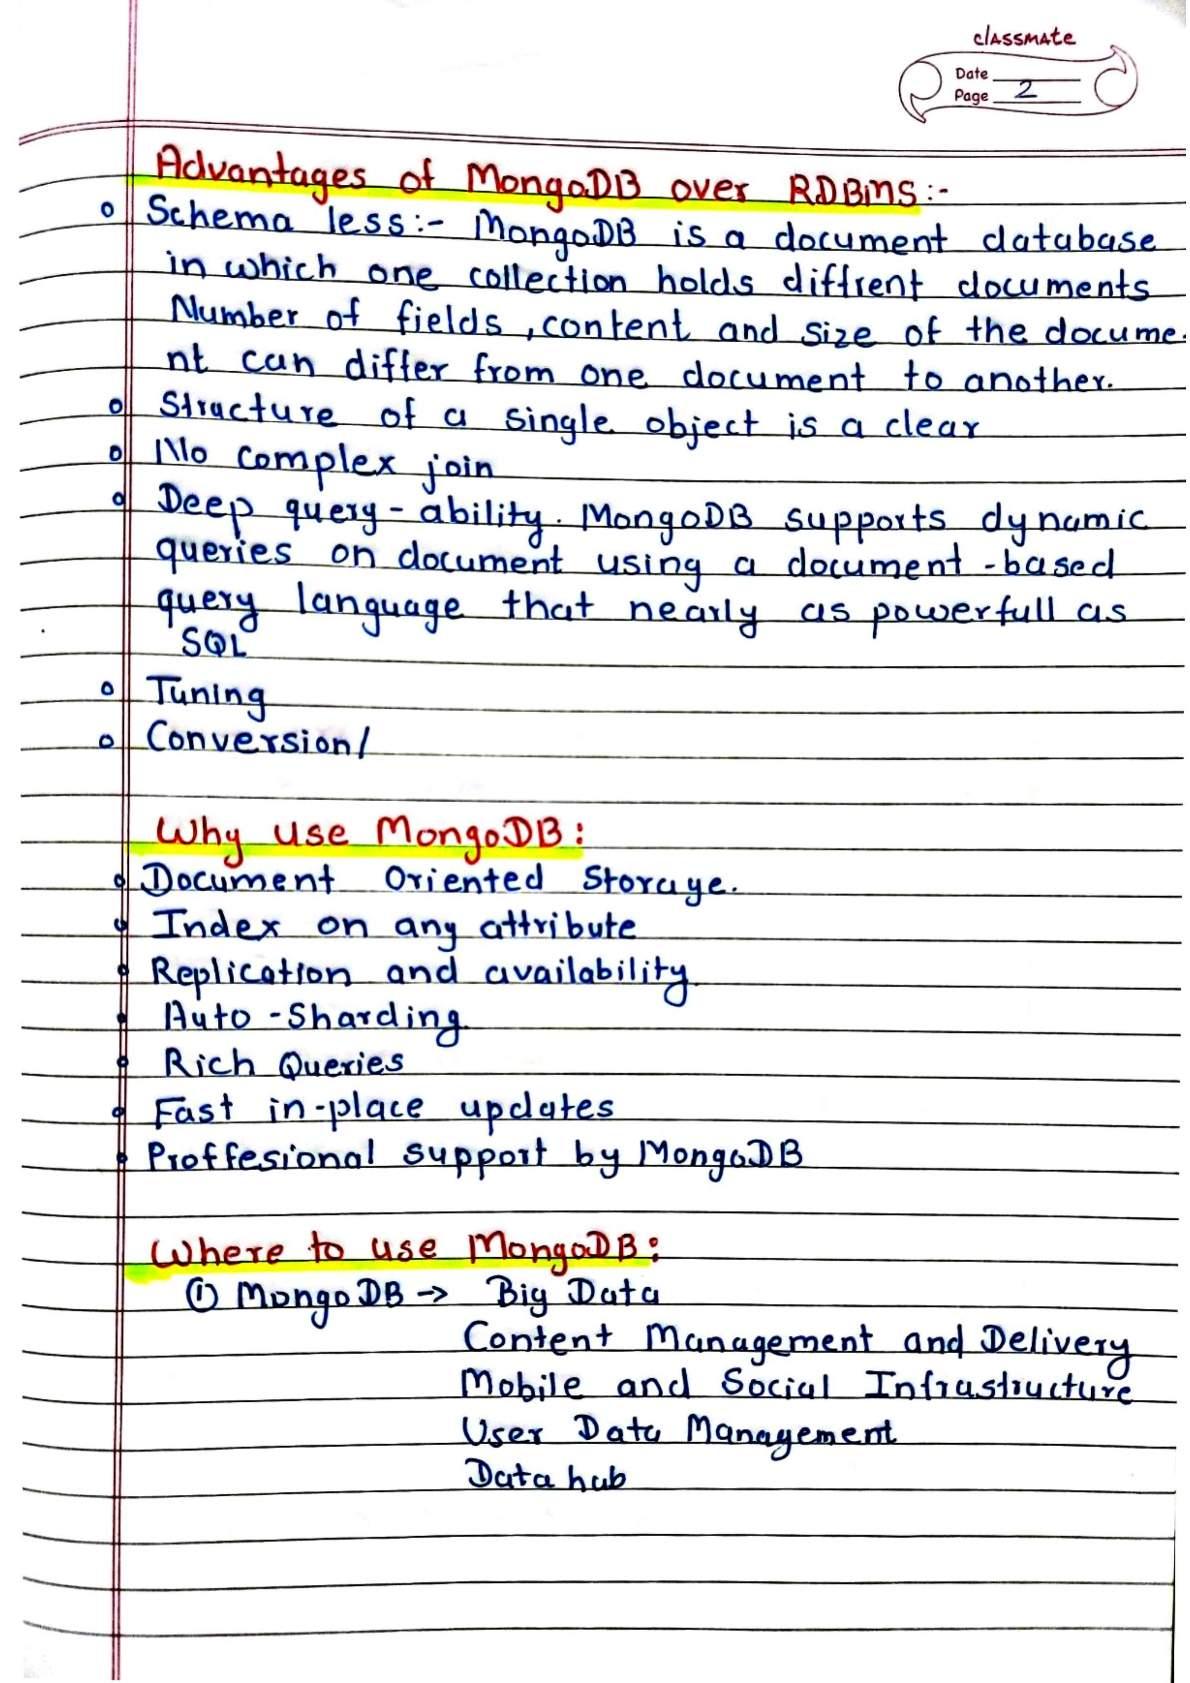 classmate
Date
Page 2
Advantages of MongoDB over RDBMS:-
Schema less:- MongoDB is a document database
in which one collection holds diffrent documents
Number of fields, content and size of the docume-
nt can differ from one document to another.
Structure of a single object is a clear
No complex join
Deep query-ability. MongoDB supports dynamic
queries on document using a document-based
query language that nearly as powerfull as
SQL
Tuning
Conversion/
Why use MongoDB:
Document Oriented Storage.
Index on any attribute
Replication and availability
Auto-Sharding
Rich Queries
Fast in-place updates
Proffesional support by MongoDB
Where to use MongoDB:
① MongoDB → Big Data
Content Management and Delivery
Mobile and Social Infrastructure
User Data Management
Data hub